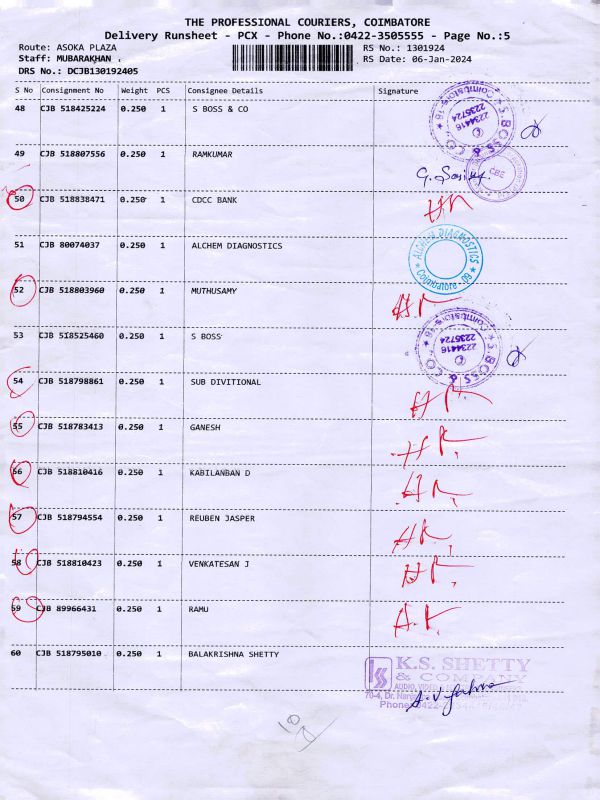 THE PROFESSIONAL COURIERS, COIMBATORE
Delivery Runsheet - PCX - Phone No.:0422-3505555 - Page No.:5
Route: ASOKA PLAZA RS No.: 1301924
Staff: MUBARAKHAN RS Date: 06-Jan-2024
DRS No.: DCJB130192405
S No Consignment No Weight PCS Consignee Details Signature
48 CJB 518425224 0.250 1 S BOSS & CO
S. BOSS & CO
Coimbatore-18
2234416
2235724
49 CJB 518807556 0.250 1 RAMKUMAR
CBE
50 CJB 518838471 0.250 1 CDCC BANK
51 CJB 80074037 0.250 1 ALCHEM DIAGNOSTICS
ALCHEM DIAGNOSTICS
Coimbatore
52 CJB 518803960 0.250 1 MUTHUSAMY
53 CJB 518525460 0.250 1 S BOSS
S. BOSS & CO
Coimbatore-18
2234416
2235724
54 CJB 518798861 0.250 1 SUB DIVITIONAL
55 CJB 518783413 0.250 1 GANESH
56 CJB 518810416 0.250 1 KABILANBAN D
57 CJB 518794554 0.250 1 REUBEN JASPER
58 CJB 518810423 0.250 1 VENKATESAN J
59 CJB 89966431 0.250 1 RAMU
60 CJB 518795010 0.250 1 BALAKRISHNA SHETTY
K.S. SHETTY
& COMPANY
AUDIO, VIDEO
70-4, Dr.
Phone: 0422-
10